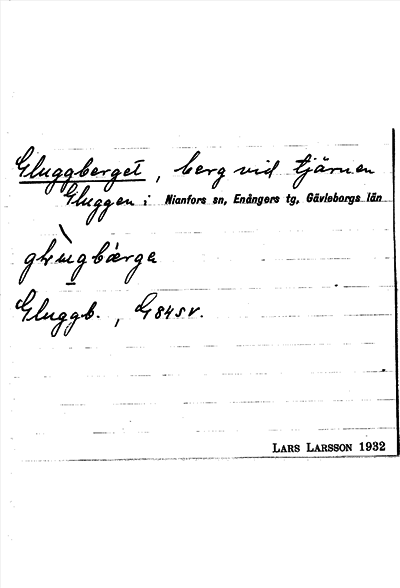 Gluggberget, berg vid tjärnen
Gluggen i Nianfors sn, Enångers tg, Gävleborgs län
Gluggb., G84SV.
LARS LARSSON 1932